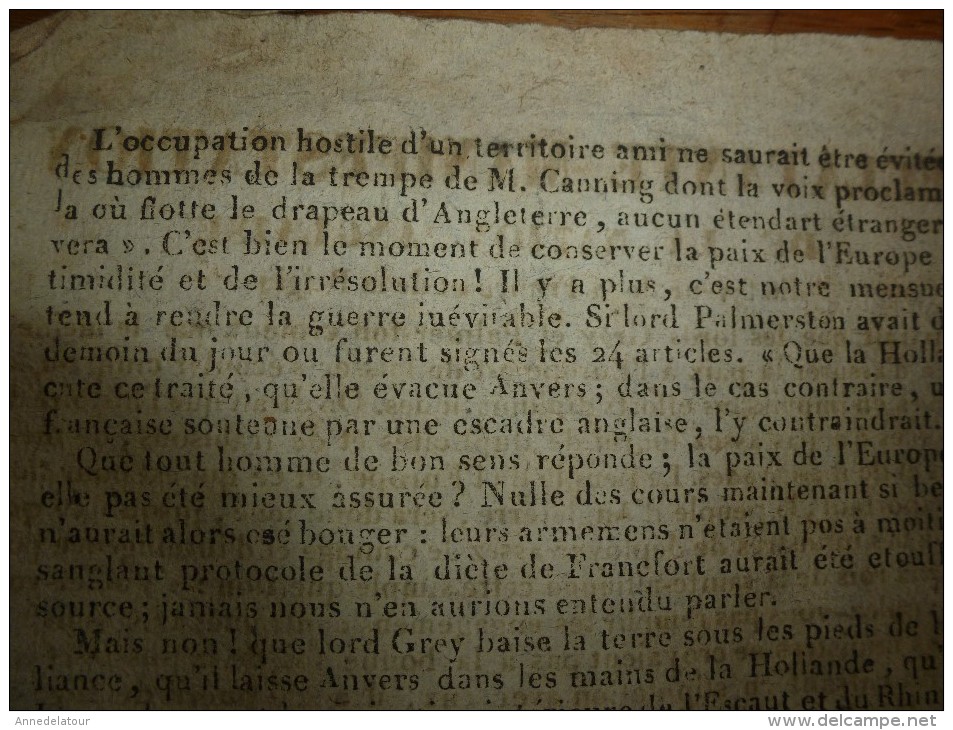 L'occupation hostile d'un territoire ami ne saurait être évitée
des hommes de la trempe de M. Canning dont la voix proclam
la où flotte le drapeau d'Angleterre, aucun étendart étranger
vera ». C'est bien le moment de conserver la paix de l'Europe
timidité et de l'irrésolution! Il y a plus, c'est notre mensue
tend à rendre la guerre inévitable. Si lord Palmerston avait d
demoin du jour ou furent signés les 24 articles. « Que la Holla
cute ce traité, qu'elle évacue Anvers; dans le cas contraire, u
française soutenue par une escadre anglaise, l'y contraindrait.
Que tout homme de bon sens réponde; la paix de l'Europe
elle pas été mieux assurée? Nulle des cours maintenant si be
n'aurait alors osé bouger : leurs armemens n'étaient pos à moiti
sanglant protocole de la diète de Francfort aurait été etouff
source; jamais nous n'en aurions entendu parler.
Mais non! que lord Grey baise la terre sous les pieds de l
liance, qu'il laisse Anvers dans les mains de la Hollande, qu
de l'Escaut et du Rhin
Annedelatour
www.delcampe.net